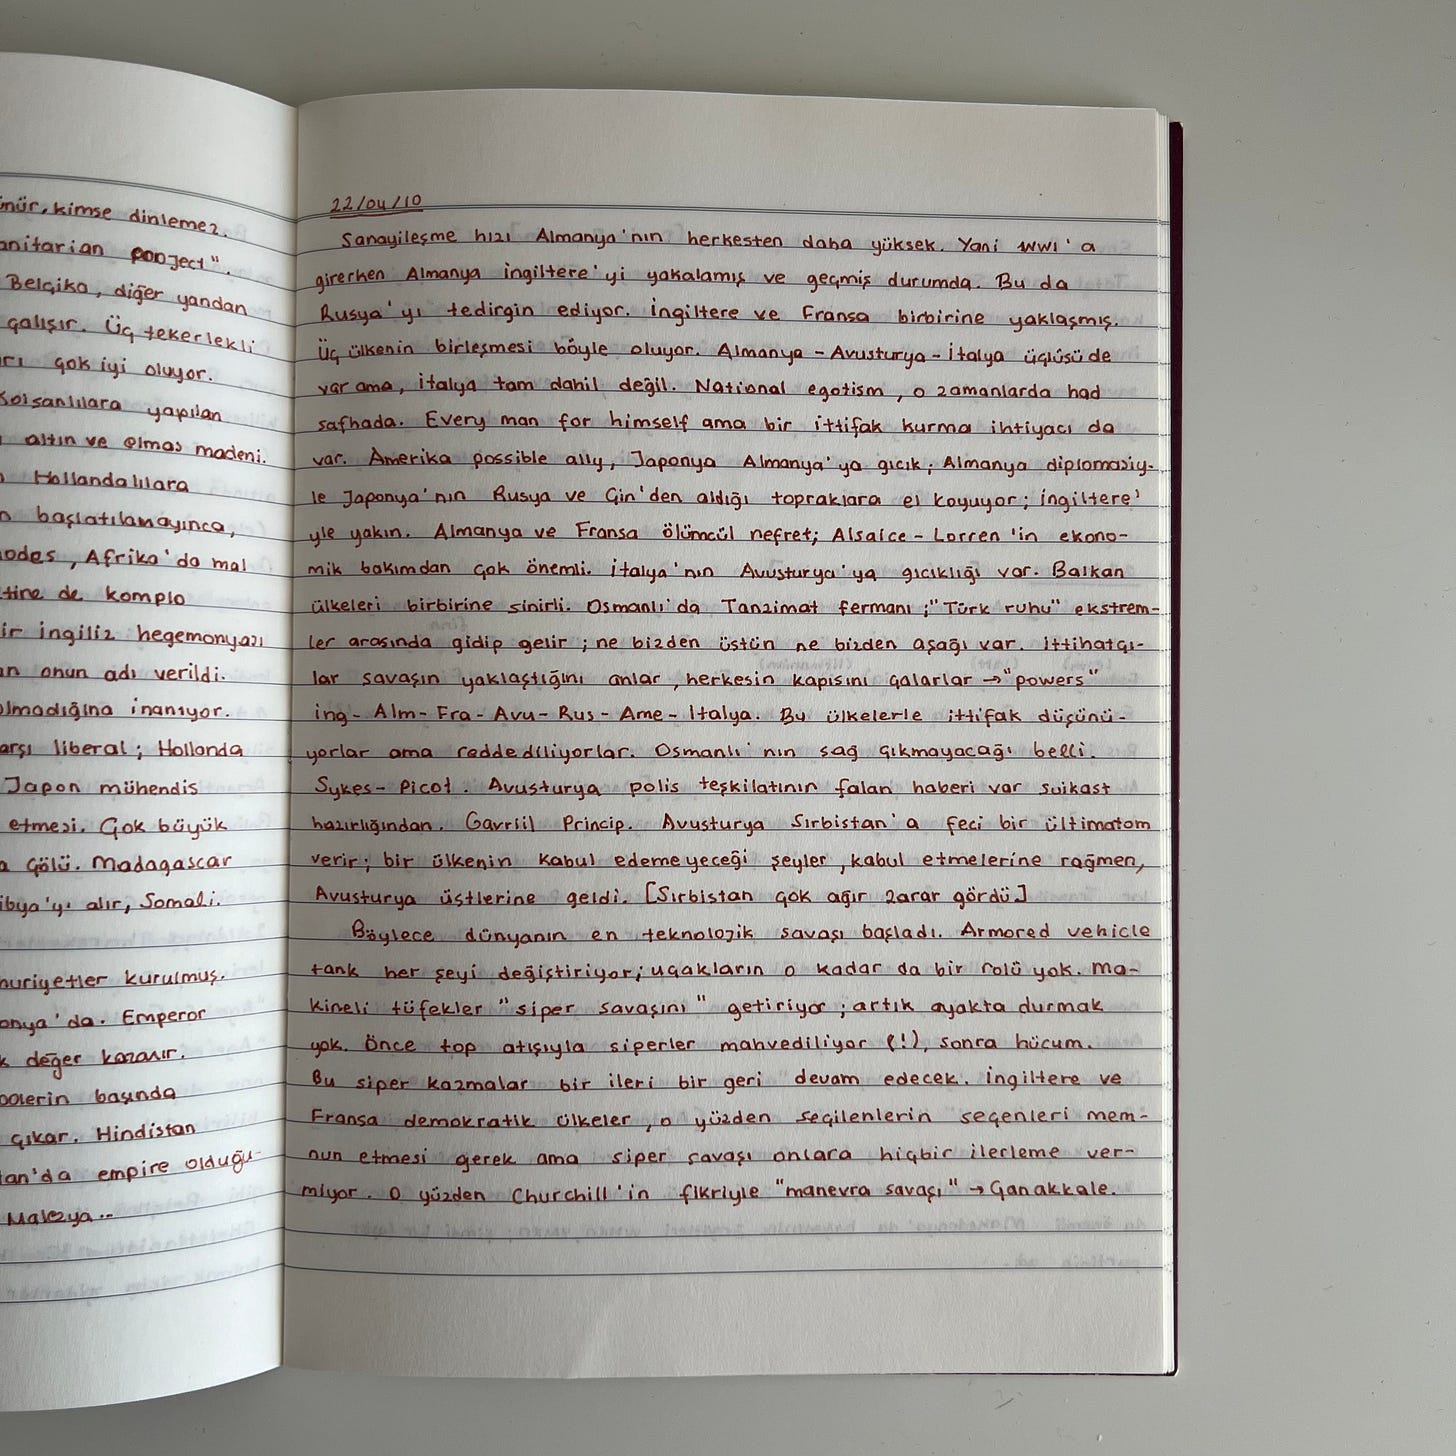 nür, kimse dinlemez.
anitarian project".
Belçika, diğer yandan
çalışır. Üç tekerlekli
rı çok iyi oluyor.
yapılan
altın ve elmas madeni.
Hollandalılara
n başlatılamayınca,
odes, Afrika'da mal
tine de komplo
ir ingiliz hegemonyası
an onun adı verildi.
olmadığına inanıyor.
arşı liberal; Hollanda
Japon mühendis
etmesi. Çok büyük
a Gölü. Madagascar
ibya'yı alır, Somali.
huriyetler kurulmuş.
onya'da. Emperor
k değer kazanır.
başında
çıkar. Hindistan
tan'da empire olduğu-
Malezya...
22/04/10
Sanayileşme hızı Almanya'nın herkesten daha yüksek. Yani WWI'a
girerken Almanya İngiltere'yi yakalamış ve geçmiş durumda. Bu da
Rusya'yı tedirgin ediyor. İngiltere ve Fransa birbirine yaklaşmış.
Üç ülkenin birleşmesi böyle oluyor. Almanya - Avusturya - İtalya üçlüsü de
var ama, İtalya tam dahil değil. National egotism, o zamanlarda had
safhada. Every man for himself ama bir ittifak kurma ihtiyacı da
var. Amerika possible ally, Japonya Almanya'ya gıcık; Almanya diplomasiy-
le Japonya'nın Rusya ve Çin'den aldığı topraklara el koyuyor; İngiltere'
yle yakın. Almanya ve Fransa ölümcül nefret; Alsaice - Lorren'in ekono-
mik bakımdan çok önemli. İtalya'nın Avusturya'ya gıcıklığı var. Balkan
ülkeleri birbirine sinirli. Osmanlı'da Tanzimat fermanı; "Türk ruhu" ekstrem-
ler arasında gidip gelir; ne bizden üstün ne bizden aşağı var. İttihatçı-
lar savaşın yaklaştığını anlar, herkesin kapısını çalarlar → "powers"
ing - Alm - Fra - Avu - Rus - Ame - Italya. Bu ülkelerle ittifak düşünü-
yorlar ama reddediliyorlar. Osmanlı'nın sağ çıkmayacağı belli.
Sykes - Picot. Avusturya polis teşkilatının falan haberi var suikast
hazırlığından. Gavriil Princip. Avusturya Sırbistan'a feci bir ültimatom
verir; bir ülkenin kabul edemeyeceği şeyler, kabul etmelerine rağmen,
Avusturya üstlerine geldi. [Sırbistan çok ağır zarar gördü.]
Böylece dünyanın en teknolojik savaşı başladı. Armored vehicle
tank her şeyi değiştiriyor; uçakların o kadar da bir rolü yok. Ma-
kineli tüfekler "siper savaşını" getiriyor; artık ayakta durmak
yok. Önce top atışıyla siperler mahvediliyor (!), sonra hücum.
Bu siper kazmalar bir ileri bir geri devam edecek. İngiltere ve
Fransa demokratik ülkeler, o yüzden seçilenlerin seçenleri mem-
nun etmesi gerek ama siper savaşı onlara hiçbir ilerleme ver-
miyor. O yüzden Churchill'in fikriyle "manevra savaşı" → Çanakkale.